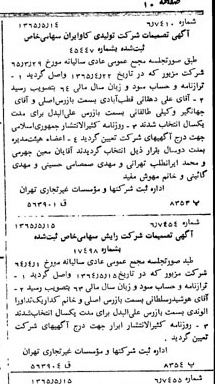 صفحه ۱۰
شماره ۶/۷۴۱۰ ۱۳۶۵/۵/۱۴
آگهی تصمیمات شرکت تولیدی کاوایران سهامی‌خاص
ثبت‌شده بشماره ۴۵۴۴۷
طبق صورتجلسه مجمع عمومی عادی سالیانه مورخ ۶۵/۳/۲۹
شرکت مزبور که در تاریخ ۱۳۶۵/۴/۲۲ واصل گردید ۱ -
ترازنامه و حساب سود و زیان سال مالی ۶۴ بتصویب رسید
۲ - آقای علی دهقانی قطب‌آبادی بسمت بازرس اصلی و آقای
جهانگیر وکیلی طالقانی بسمت بازرس علی‌البدل برای مدت
یکسال انتخاب شدند ۳ - روزنامه کثیرالانتشار جمهوری‌اسلامی
جهت درج آگهیهای شرکت تعیین گردید ۴ - اعضاء هیئت‌مدیره
بمدت دوسال بقرار ذیل انتخاب گردیدند آقایان معین جهرمی
و محمد ایرانطلب تهرانی و مهدی صمصامی حسینی و مهدی
گائینی و خانم مهوش مفید
اداره ثبت شرکتها و مؤسسات غیرتجاری تهران
پ ۸۳۵۳ ف ۵۶۳۹۰۱
شماره ۶/۷۴۵۴ ۱۳۶۵/۵/۱۵
آگهی تصمیمات شرکت رایش سهامی‌خاص ثبت‌شده
بشماره ۱۷۴۹۸
طبق صورتجلسه مجمع عمومی عادی سالیانه مورخه ۶۴/۴/۱
شرکت مزبور که در تاریخ ۱۳۶۴/۵/۱۵ واصل گردید ۱ -
ترازنامه و حساب سود و زیان سال ۶۳ بتصویب رسید ۲ -
آقای هوشیدرسلطانی بسمت بازرس اصلی و خانم کداریک‌نداورا
الوندی بسمت بازرس علی‌البدل برای مدت یکسال انتخاب‌شدند
۳ - روزنامه کثیرالانتشار ابرار جهت درج آگهیهای شرکت
تعیین گردید
اداره ثبت شرکتها و مؤسسات غیرتجاری تهران
پ ۸۳۵۴ ف ۵۶۳۹۰۴
شماره ۶/۷۴۵۵ ۱۳۶۵/۵/۱۵